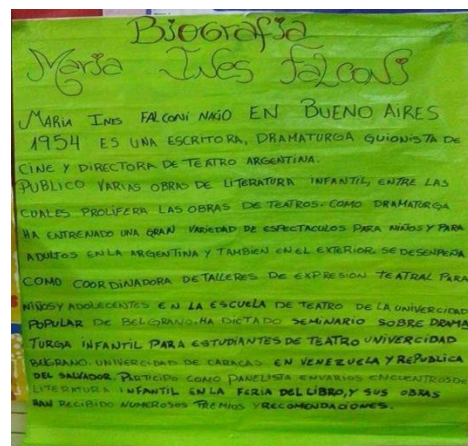 Biografia
Maria Ines Falconi
MARIA INES FALCONI NACIO EN BUENO AIRES
1954 ES UNA ESCRITORA, DRAMATURGA GUIONISTA DE
CINE Y DIRECTORA DE TEATRO ARGENTINA.
PUBLICO VARIAS OBRAS DE LITERATURA INFANTIL, ENTRE LAS
CUALES PROLIFERA LAS OBRAS DE TEATROS. COMO DRAMATURGA
HA ENTRENADO UNA GRAN VARIEDAD DE ESPECTACULOS PARA NIÑOS Y PARA
ADULTOS EN LA ARGENTINA Y TAMBIEN EN EL EXTERIOR. SE DESENPEÑA
COMO COORDINADORA DE TALLERES DE EXPRESION TEATRAL PARA
NIÑOS Y ADOLECENTES EN LA ESCUELA DE TEATRO DE LA UNIVERCIDAD
POPULAR DE BELGRANO. HA DICTADO SEMINARIO SOBRE DRAMA
TURGA INFANTIL PARA ESTUDIANTES DE TEATRO UNIVERCIDAD
BELGRANO. UNIVERCIDAD DE CARACAS EN VENEZUELA Y REPUBLICA
DEL SALVADOR. PARTICIPO COMO PANELISTA EN VARIOS ENCUENTROS DE
LITERATURA INFANTIL EN LA FERIA DEL LIBRO, Y SUS OBRAS
HAN RECIBIDO NUMEROSOS PREMIOS Y RECOMENDACIONES.